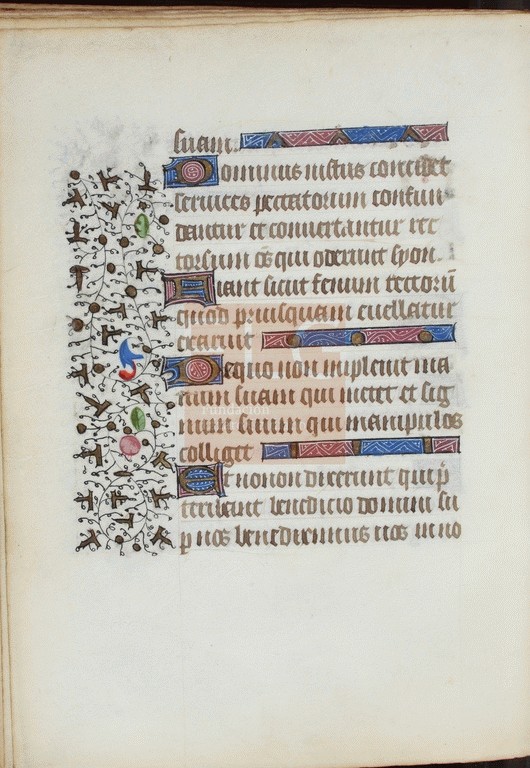 suam.
Dominus iustus concidet
cervices peccatorum confun-
dantur et convertantur ret
rorsum os̄ qui oderunt syon.
Fiant sicut fenum tectorū
quod priusquam evellatur
exaruit
De quo non implevit ma
num suam qui metet et sig
num suum qui manipulos
colliget
Et non dixerunt qui p̄
teribant benedicio domini su
per nos benediximus vos in no
Fundación